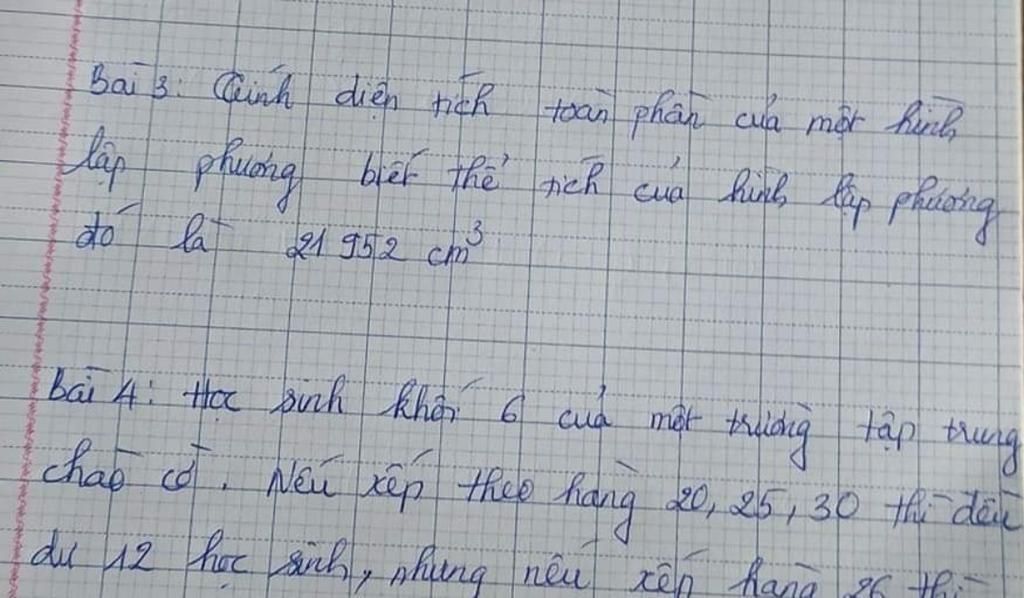 Bài 3: Tính diện tích toàn phần của một hình
lập phương biết thể tích của hình lập phương
đó là 21 952 cm³
Bài 4: Học sinh khối 6 của một trường tập trung
chào cờ. Nếu xếp theo hàng 20, 25, 30 thì đều
dư 12 học sinh, nhưng nếu xếp hàng 26 thì